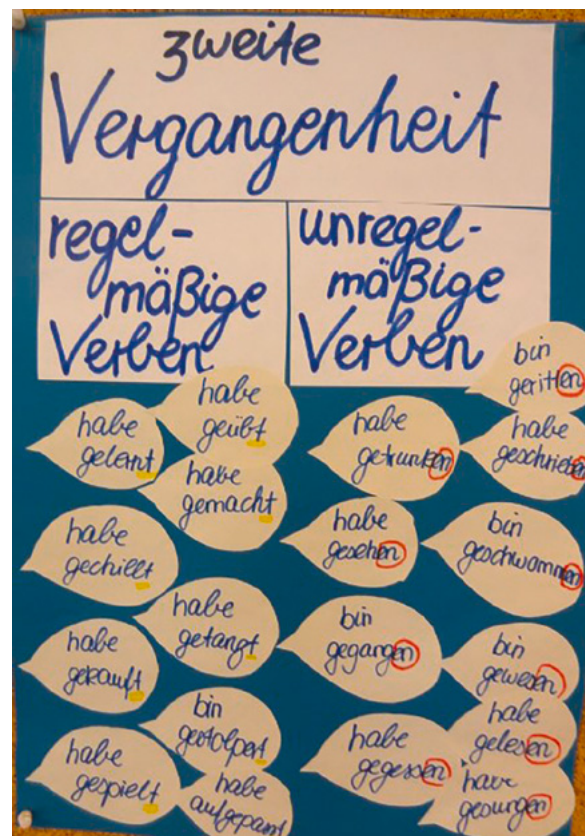 zweite
Vergangenheit
regel-
mäßige
Verben
unregel-
mäßige
Verben
habe
geübt
habe
gelernt
habe
gemacht
habe
gechillt
habe
getanzt
habe
gekauft
bin
gestolpert
habe
gespielt
habe
aufgepasst
bin
geritten
habe
getrunken
habe
geschrieben
habe
gesehen
bin
geschwommen
bin
gegangen
bin
gewesen
habe
gelesen
habe
gegessen
habe
gesungen